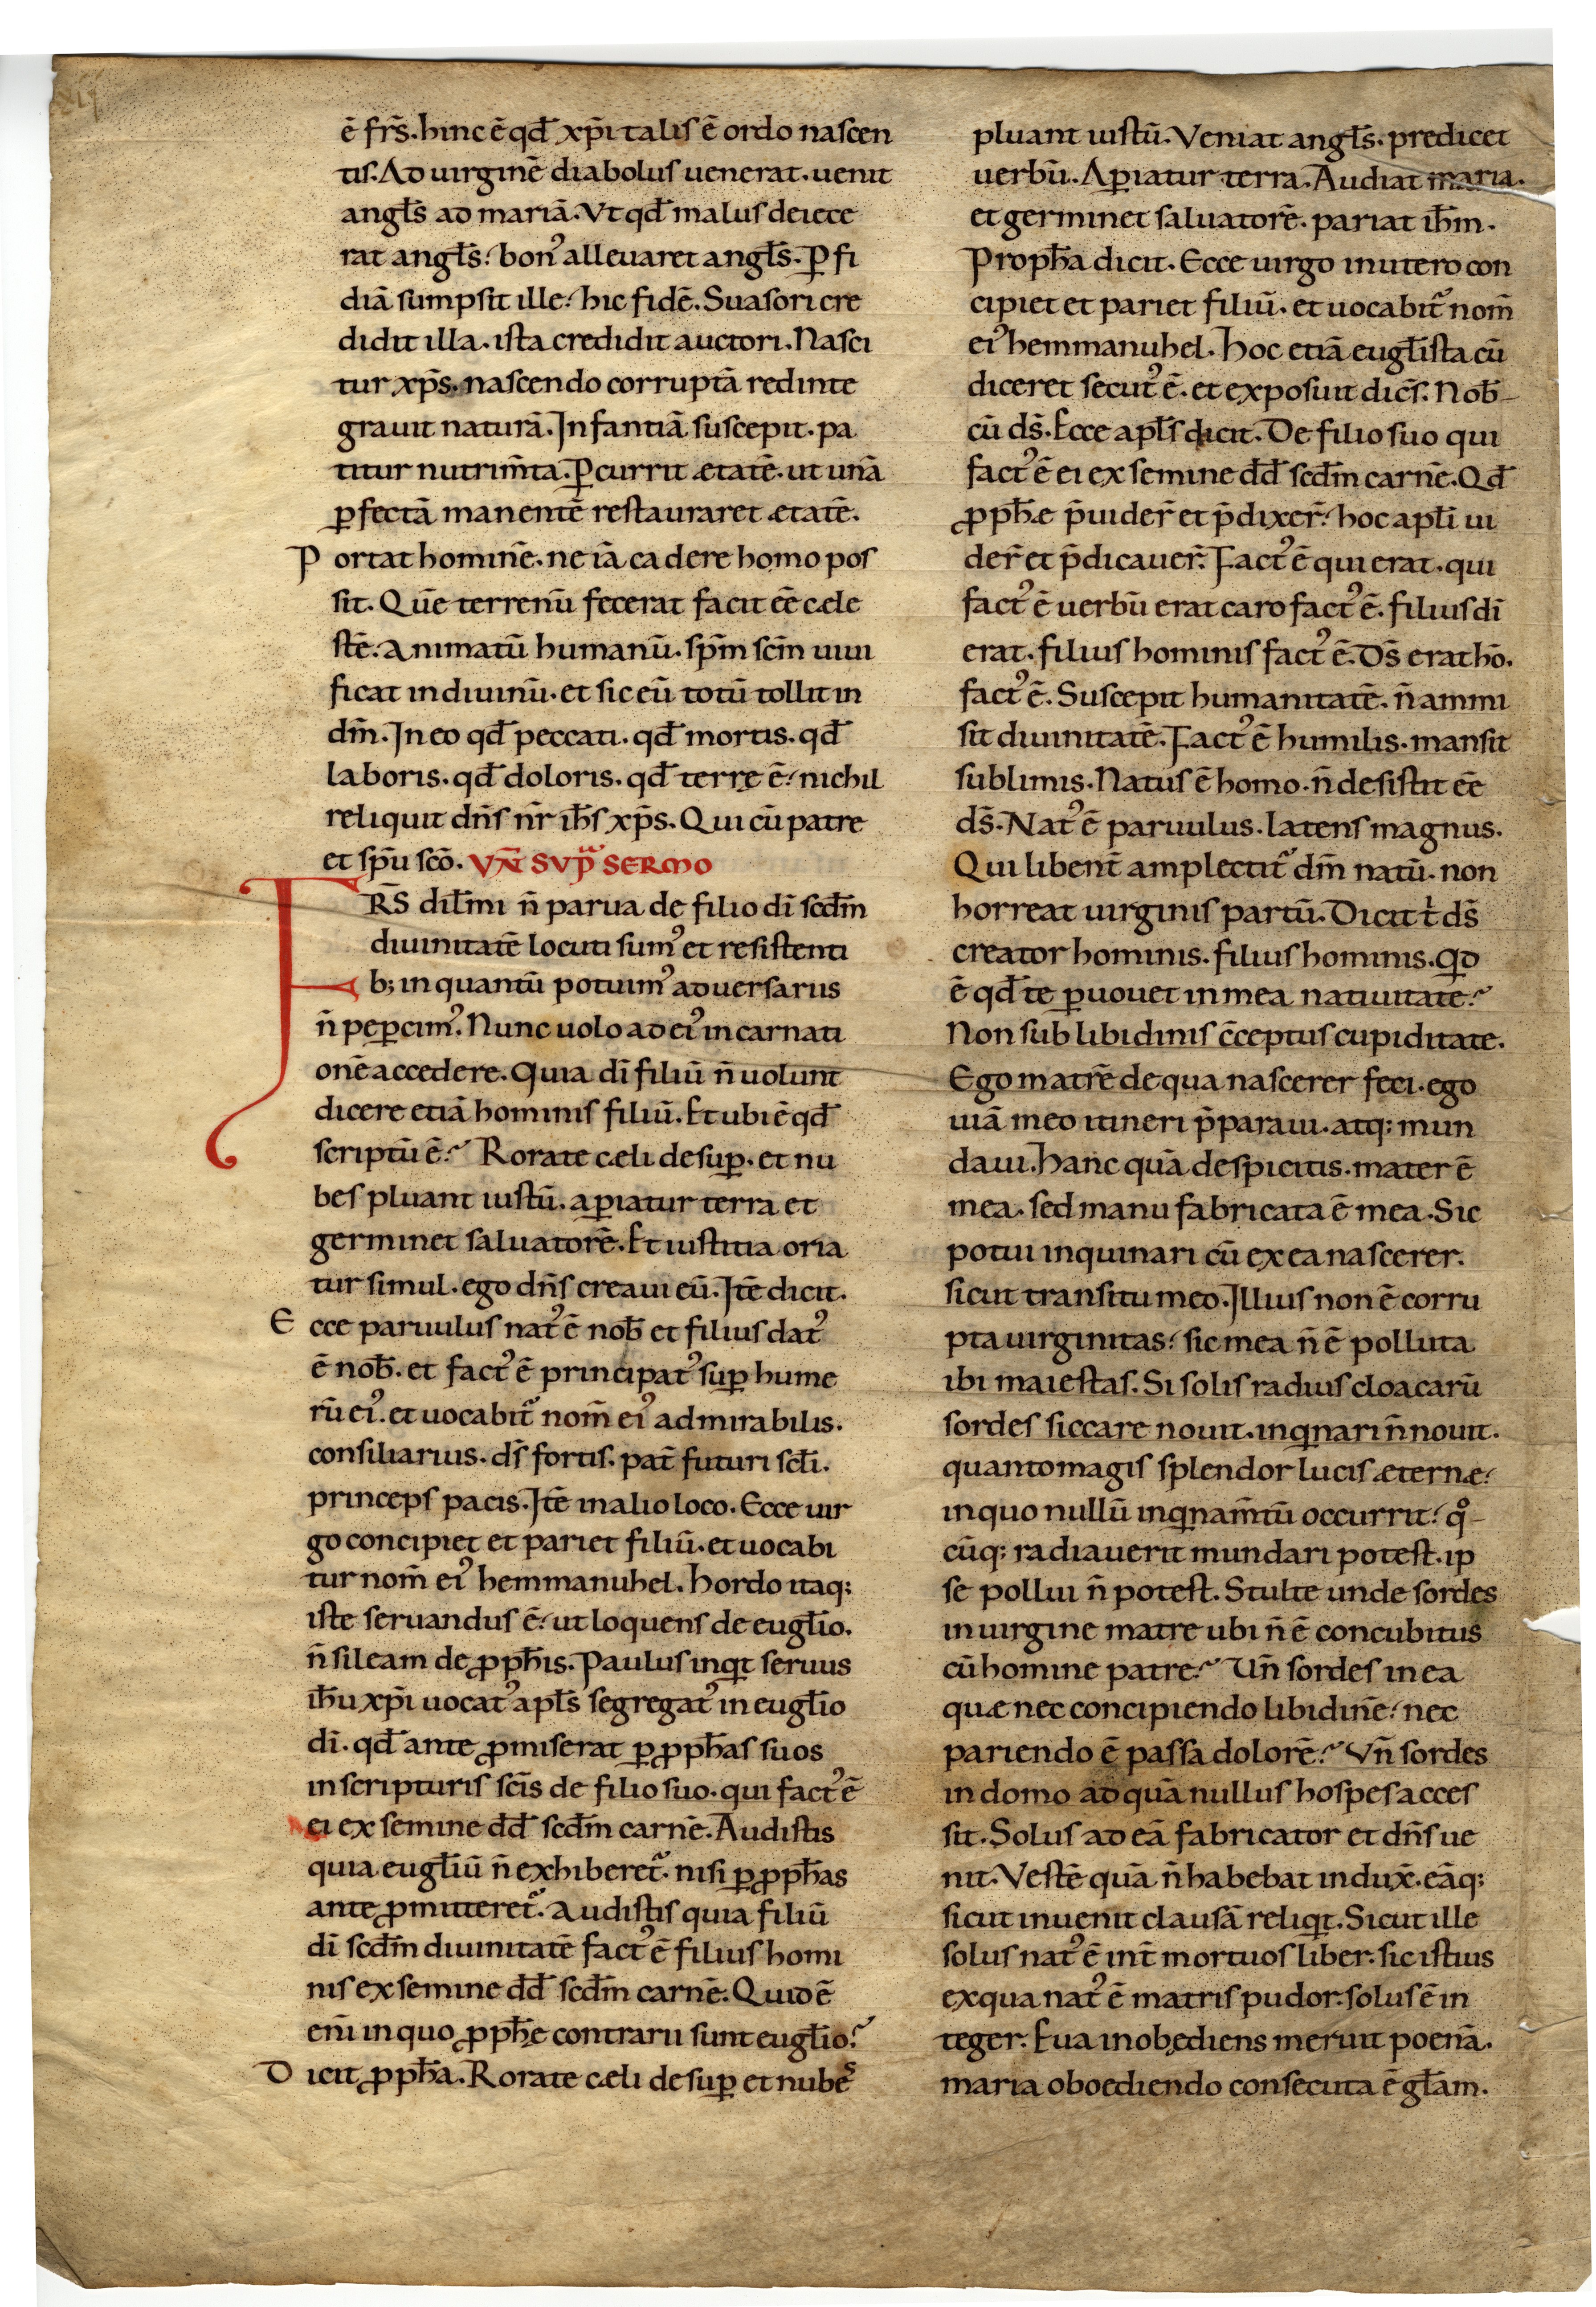 ē fr̄s. hinc ē qđ xp̄i talis ē ordo nascen
tis. Ad uirginē diabolus uenerat. uenit
angl̄s ad mariā. Vt qđ malus deiece
rat angl̄s. bon᾿ alleuaret angl̄s. ꝑfi
diā sumpsit ille. hic fidē. Suasori cre
didit illa. ista credidit auctori. Nasci
tur xp̄s. nascendo corruptā redinte
grauit naturā. Infantiā suscepit. pa
titur nutrim̄ta. ꝑcurrit ætatē. ut unā
ꝑfectā manentē restauraret ætatē.
Portat hominē. ne iā cadere homo pos
sit. Quē terrenū fecerat facit eē cæle
stē. Animatū humanū. sp̄m sc̄m uiui
ficat in diuinū. et sic eū totū tollit in
dm̄. In eo qđ peccati. qđ mortis. qđ
laboris. qđ doloris. qđ terrę ē. nichil
reliquit dn̄s nr̄ ih̄s xp̄s. Qui cū patre
et sp̄u sc̄o. VN̄ SVPᷓ SERMO
FR̄S dil̄mi n̄ parua de filio dī scdm̄
diuinitatē locuti sum᾿ et resistenti
b; in quantū potuim᾿ aduersariis
n̄ peꝑcim᾿. Nunc uolo ad ei᾿ incarnati
onē accedere. Quia dī filiū n̄ uolunt
dicere etiā hominis filiū. Et ubi ē qđ
scriptū ē. Rorate cæli desuꝑ. et nu
bes pluant iustū. aꝑiatur terra et
germinet saluatorē. Et iustitia oria
tur simul. ego dn̄s creaui eū. Itē dicit.
Ecce paruulus nat᾿ ē nob̄ et filius dat᾿
ē nob̄. et fact᾿ ē principat᾿ suꝑ hume
rū ei᾿. et uocabitᷣ nom̄ ei᾿ admirabilis.
consiliarius. ds̄ fortis. pat̄ futuri scl̄i.
princeps pacis. Itē in alio loco. Ecce uir
go concipiet et pariet filiū. et uocabi
tur nom̄ ei᾿ hemmanuhel. hordo itaq;
iste seruandus ē. ut loquens de eugl̄io.
n̄ sileam de ꝓph̄is. Paulus inqͥt seruus
ih̄u xp̄i uocat᾿ apl̄s segregat᾿ in eugl̄io
dī. qđ ante ꝓmiserat ꝑ ꝓph̄as suos
in scripturis sc̄is de filio suo. qui fact᾿ ē
ei ex semine dđ scdm̄ carnē. Audistis
quia eugl̄iū n̄ exhiberetᷣ. nisi ꝑ ꝓph̄as
ante ꝓmitteretᷣ. Audistis quia filiū
dī scdm̄ diuinitatē fact᾿ ē filius homi
nis ex semine dđ scdm̄ carnē. Quid ē
eni᷒ in quo ꝓph̄e contrarii sunt eugl̄io?
Dicit ꝓph̄a. Rorate cæli desuꝑ et nubes
pluant iustū. Veniat angl̄s. predicet
uerbū. Aꝑiatur terra. Audiat maria.
et germinet saluatorē. pariat ih̄m.
Proph̄a dicit. Ecce uirgo in utero con
cipiet et pariet filiū. et uocabitᷣ nom̄
ei᾿ hemmanuhel. hoc etiā eugl̄ista cū
diceret secut᾿ ē. et exposuit dic̄s. Nob̄
cū ds̄. Ecce apl̄s dicit. De filio suo qui
fact᾿ ē ei ex semine dđ scdm̄ carnē. Qđ
ꝓph̄æ p̄uider̄ et p̄dixer̄. hoc apl̄i ui
der̄ et p̄dicauer̄. Fact᾿ ē qui erat. qui
fact᾿ ē uerbū erat caro fact᾿ ē. filius dī
erat. filius hominis fact᾿ ē. Ds̄ erat hō.
fact᾿ ē. Suscepit humanitatē. n̄ ammi
sit diuinitatē. Fact᾿ ē humilis. mansit
sublimis. Natus ē homo. n̄ desistit eē
ds̄. Nat᾿ ē paruulus. latens magnus.
Qui libent̄ amplectitᷣ dm̄ natū. non
horreat uirginis partū. Dicit t̄ ds̄
creator hominis. filius hominis. Qͥd
ē qđ te ꝑuouet in mea natiuitate?
Non sub libidinis c̄ceptus cupiditate.
Ego matrē de qua nascerer feci. ego
uiā meo itineri p̄paraui. atq; mun
daui. hanc quā despicitis. mater ē
mea. sed manu fabricata ē mea. Sic
potui inquinari cū ex ea nascerer.
sicut transitu meo. Illius non ē corru
pta uirginitas. sic mea n̄ ē polluta
ibi maiestas. Si solis radius cloacarū
sordes siccare nouit. inqͥnari n̄ nouit.
quanto magis splendor lucis æternæ.
in quo nullū inqͥnam̄tū occurrit. qͦ
cūq; radiauerit mundari potest. ip
se pollui n̄ potest. Stulte unde sordes
in uirgine matre ubi n̄ ē concubitus
cū homine patre? Un̄ sordes in ea
quæ nec concipiendo libidinē. nec
pariendo ē passa dolorē? Vn̄ sordes
in domo ad quā nullus hospes acces
sit. Solus ad eā fabricator et dn̄s ue
nit. Vestē quā n̄ habebat indux̄. eāq;
sicut inuenit clausā reliqͥt. Sicut ille
solus nat᾿ ē int̄ mortuos liber. sic istius
ex qua nat᾿ ē matris pudor. solus ē in
teger. Eua inobediens meruit poenā.
maria oboediendo consecuta ē gl̄am.